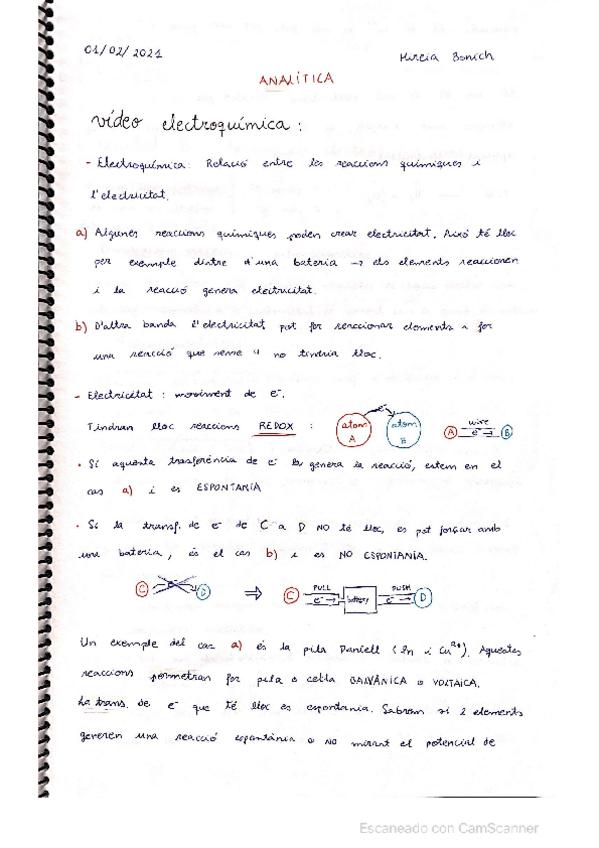 01/02/2021
Mireia Bonich
ANALÍTICA
vídeo electroquímica:
- Electroquímica: Relació entre les reaccions químiques i
l'electricitat.
a) Algunes reaccions químiques poden crear electricitat. Això té lloc
per exemple dintre d'una bateria → els elements reaccionen
i la reacció genera electricitat.
b) D'altra banda l'electricitat pot fer reaccionar elements i fer
una reacció que sense " no tindria lloc.
- Electricitat: moviment de e⁻.
Tindran lloc reaccions REDOX :
e⁻
atom A
atom B
wire
A e⁻ B
• Si aquesta trasferència de e⁻ la genera la reacció, estem en el
cas a) i es ESPONTÀNIA
• Si la transf. de e⁻ de C a D NO té lloc, es pot forçar amb
una bateria, és el cas b) i es NO ESPONTÀNIA.
C e⁻ D ⇒ C PULL e⁻ battery PUSH e⁻ D
Un exemple del cas a) és la pila Daniell (Zn i Cu²⁺). Aquestes
reaccions permetran fer pila o cel·la GALVÀNICA o VOLTAICA.
La trans. de e⁻ que té lloc es espontània. Sabrem si 2 elements
generen una reacció espontània o NO mirant el potencial de
Escaneado con CamScanner